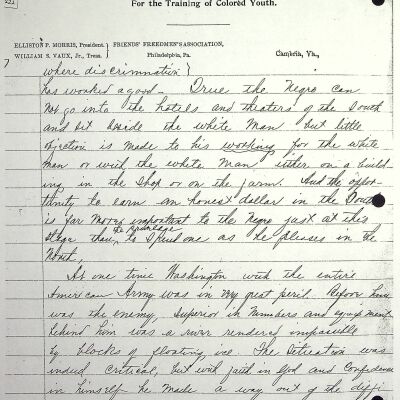 For the Training of Colored Youth.
ELLISTON P. MORRIS, President. } FRIENDS' FREEDMEN'S ASSOCIATION,
WILLIAM S. VAUX, Jr., Treas. } Philadelphia, Pa. Cambria, Va.,
7
where discrimination }
has worked a good - True the Negro can
not go into the hotels and theaters of the South
and sit beside the white Man but little
objection is made to his working for the white
man or with the white Man either on a build
ing in the Shop or on the farm. And the oppor-
tunity to earn an honest dollar in the South
is far more important to the Negro just at this
stage than the privilege to spend one as he pleases in the
North,
At one time Washington with the entire
American Army was in very great peril. Before him
was the enemy, superior in numbers and equipment
behind him was a river rendered impassible
by blocks of floating ice. The Situation was
indeed critical, but with faith in God and Confidence
in himself he made a way out of the diffi